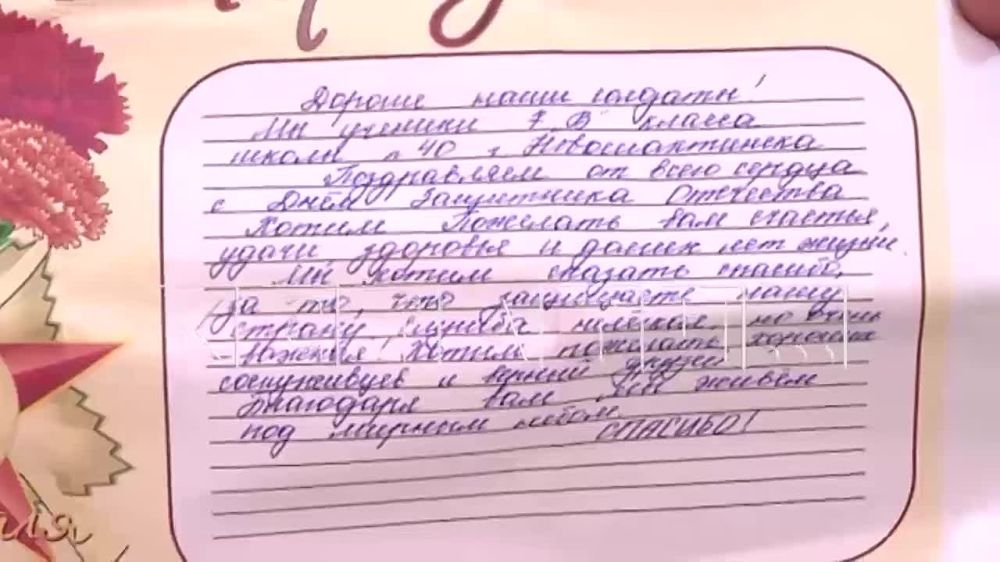 Дорогие наши солдаты!
Мы ученики 7 "В" класса
школы №40 г. Новошахтинска
Поздравляем от всего сердца
с Днём Защитника Отечества
Хотим Пожелать вам счастья,
удачи здоровья и долгих лет жизни.
Мы хотим сказать спасибо,
за то, что защищаете нашу
страну, служба нелёгкая, но очень
важная! Хотим пожелать хороших
сослуживцев и верных друзей
Благодаря вам мы живём
под мирным небом.
СПАСИБО!